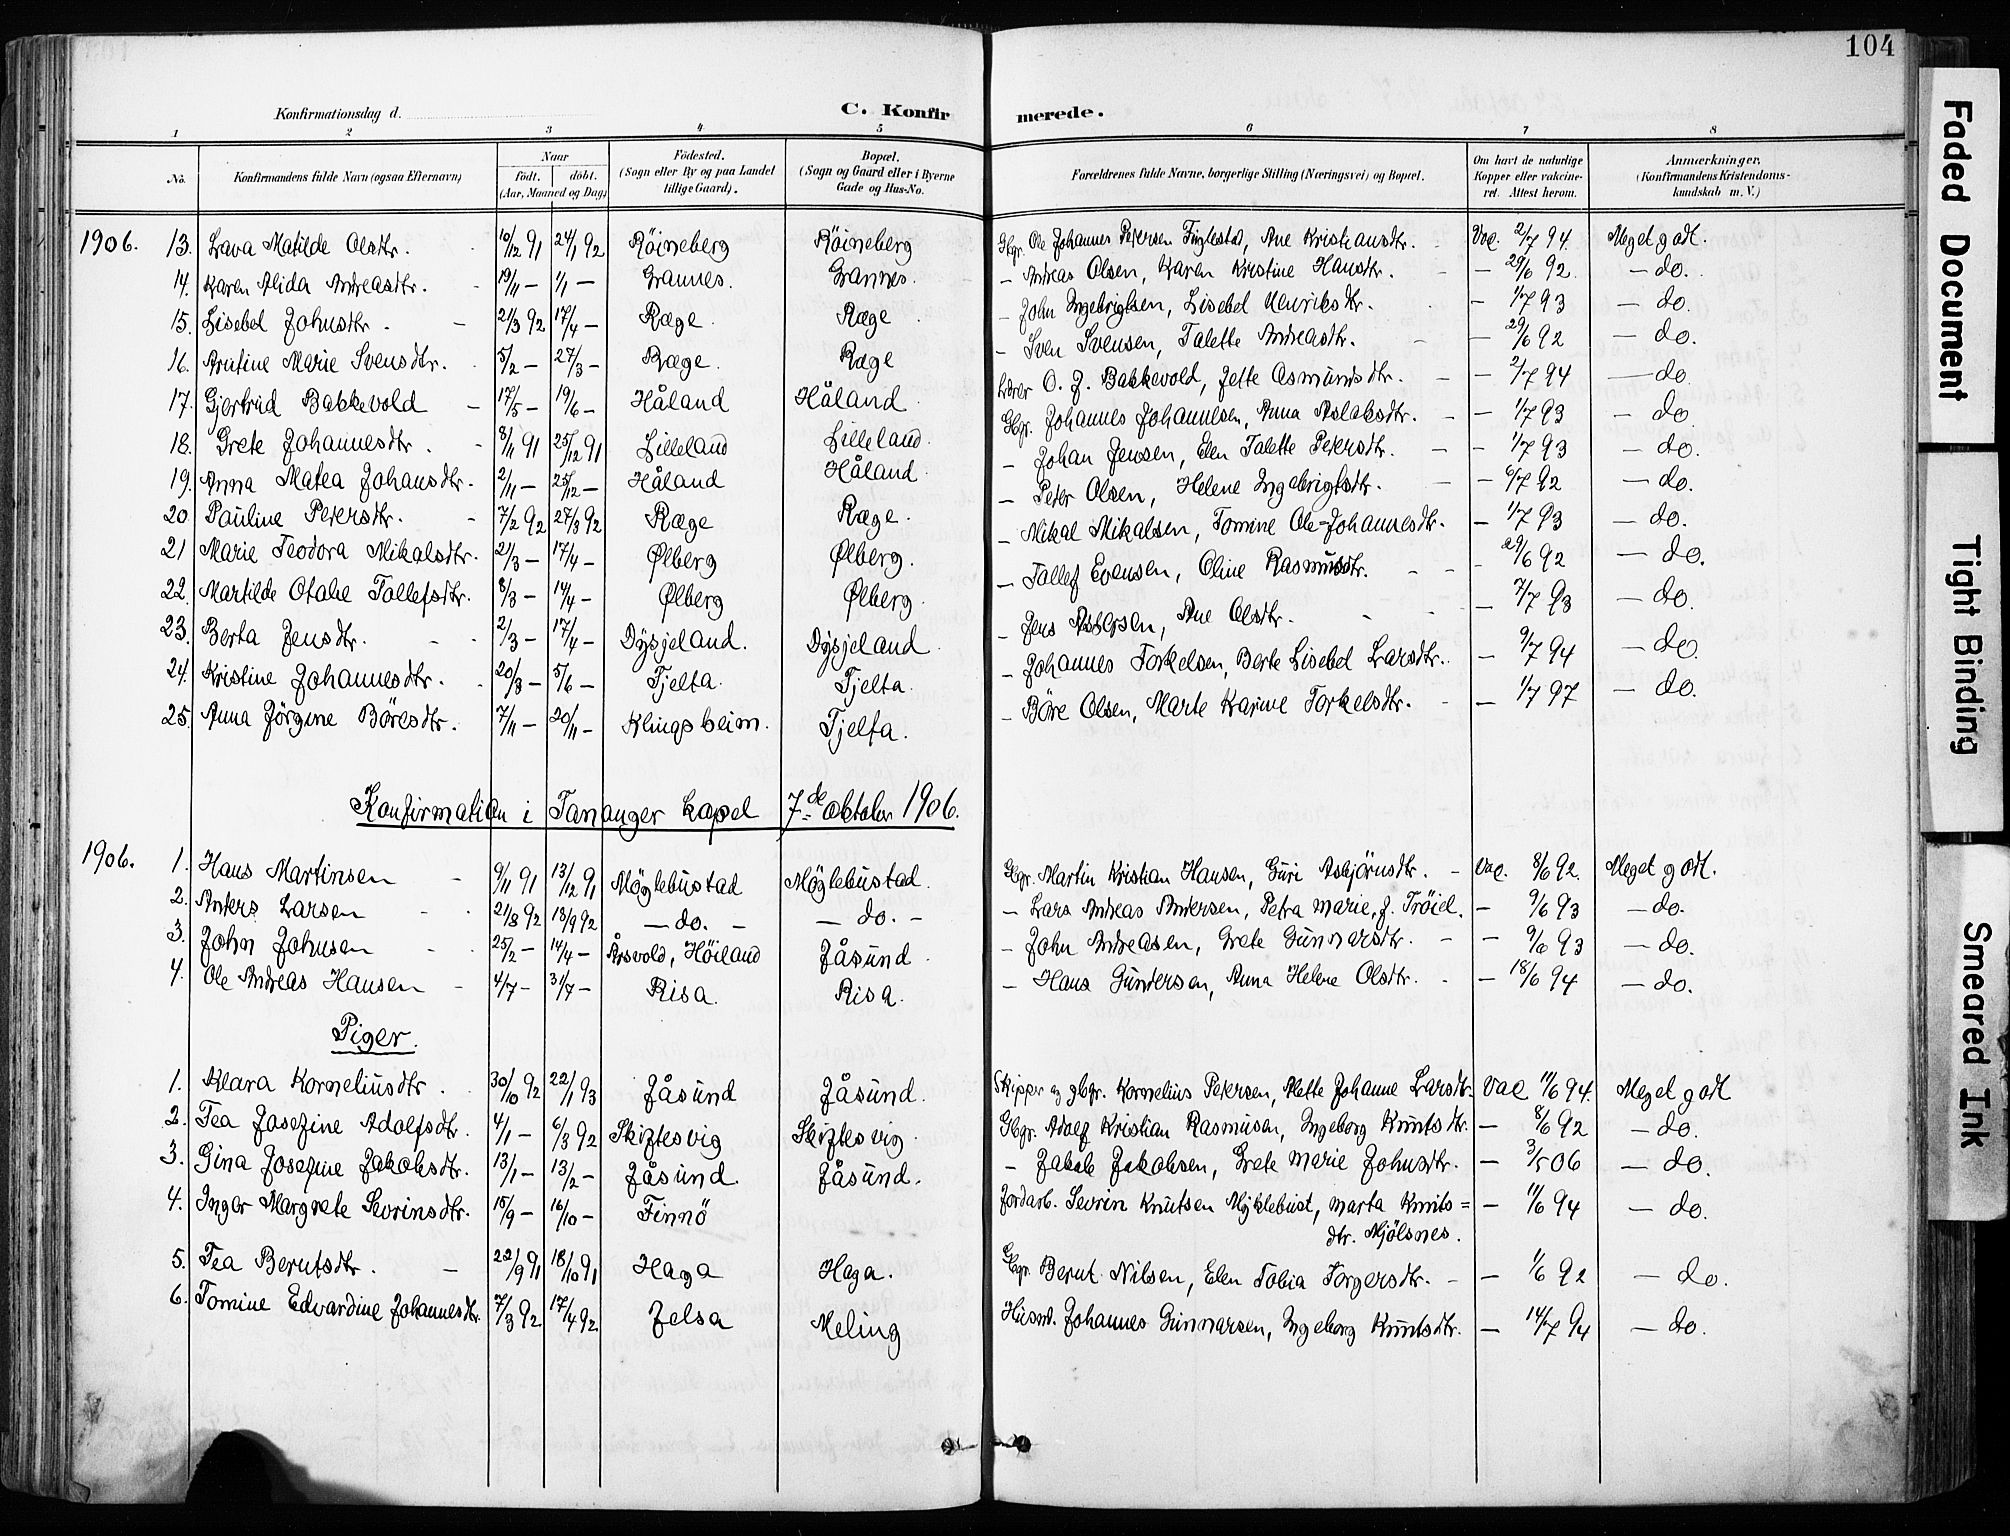 104
Konfirmationsdag d.
C. Konfirmerede.
1 2 3 4 5 6 7 8
No. Konfirmandens fulde Navn (ogsaa Efternavn) Naar født. døbt. (Aar, Maaned og Dag) Födested. (Sogn eller By og paa Landet tillige Gaard). Bopæl. (Sogn og Gaard eller i Byerne Gade og Hus-No. Forældrenes fulde Navne, borgerlige Stilling (Næringsvei) og Bopæl. Om havt de naturlige Kopper eller vakcineret. Attest herom. Anmærkninger. (Konfirmandens Kristendomskundskab m. V.)
1906. 13. Lava Matilde Olsdtr. 10/12 91 24/1 92 Röineberg Röineberg Gbgr. Ole Johannes Petersen, Ane Kristiansdtr. Vac. 2/7 94. Meget godt.
14. Karen Alida Andreasdtr. 19/11 — 1/1 — Grannes. Grannes. — Andreas Olsen, Karen Kristine Hansdtr. — 29/6 92. — do.
15. Lisebel Johnsdtr. 21/3 92 17/4 — Ræge. Ræge — John Ingebrigtsen, Lisebel Henriksdtr. — 1/7 93 — do.
16. Kristine Marie Svensdtr. 5/2 — 27/3 — Ræge. Ræge — Sven Svensen, Talette Andreasdtr. — 29/6 92 — do.
17. Gjertrud Bakkevold — 17/5 — 19/6 — Håland Håland Lærer O. J. Bakkevold, Jette Asmundsdtr. — 2/7 94 — do.
18. Grete Johannesdtr. 8/11 91 25/12 91 Lilleland Lilleland. Gbgr. Johannes Johannesen, Anna Aslaksdtr. — 1/7 93 — do.
19. Anna Matea Johansdtr. 2/11 — 25/12 — Håland Håland — Johan Jensen, Elen Talette Petersdtr. — 1/7 93 — do.
20 Pauline Petersdtr. 7/2 92 27/3 92 Ræge Ræge. — Peter Olsen, Helene Ingebrigtsdtr. — 6/7 92 — do.
21 Marie Teodora Mikalsdtr. 21/3 — 17/4 — Ølberg Ølberg. — Mikal Mikalsen, Tomine Ole-Johannesdtr. — 1/7 93 — do.
22. Martilde Otalie Tollefsdtr. 8/3 — 14/4 — Ølberg Ølberg. — Tollef Evensen, Oline Rasmusdtr. — 29/6 92 — do.
23. Berta Jensdtr. 2/3 — 17/4 — Dysjeland. Dysjeland. — Jens Asbjrsen, Ane Olsdtr. — 7/7 93 — do.
24. Kristine Johannesdtr. 20/3 — 5/6 — Tjelta. Tjelta. — Johannes Torkelsen, Berte Lisebel Larsdtr. — 9/7 94 — do.
25. Anna Jörgine Böresdtr. 7/11 — 20/11 — Klingsheim. Tjelta. — Böre Olsen, Marte Karine Torkelsdtr. — 1/7 97 — do.
Konfirmation i Tananger kapel 7de Oktober 1906.
1906. 1. Hans Martinsen — 9/11 91 13/12 91 Möglebustad Möglebustad. Gbgr. Martin Kristian Hansen, Guri Asbjörnsdtr. — Vac. 8/6 92. Meget godt.
2. Anders Larsen 21/8 92 18/9 92 — do. — — do. — — Lars Andreas Andersen, Petra Marie, f. Tröiel. — 9/6 93 — do.
3. John Johnsen 25/2 — 14/4 — Årsvold, Höiland Jåsund. — John Andreasen, Grete Gunnarsdtr. — 9/6 93 — do.
4. Ole Andreas Hansen — 4/7 — 31/7 — Risa. Risa. — Hans Gundersen, Anna Helene Olsdtr. — 18/6 94 — do.
Piger.
1. Klara Korneliusdtr. 30/10 92 22/1 93 Jåsund Jåsund. Skipper og gbgr. Kornelius Petersen, Alette Johanne Larsdtr. Vac 11/6 94. Meget godt
2. Tea Josefine Adolfsdtr. 4/1 — 6/3 92 Skiftesvig Skiftesvig. Gbgr. Adolf Kristian Rasmusen, Ingeborg Knutsdtr. — 8/6 92 — do.
3. Gina Josefine Jakobsdtr. 13/1 — 13/2 — Jåsund. Jåsund. — Jakob Jakobsen, Grete Marie Johnsdtr. — 3/5 06 — do.
4. Inger Margrete Sevrinsdtr. 15/9 — 16/10 — Finnö Jordarb. Sevrin Knutsen Myklebust, Marta Knuts= — 11/6 94 — do.
dtr. Mjölsnes.
5. Tea Berntsdtr. — 22/9 91 18/10 91 Haga Haga. Gbgr. Bernt Nilsen, Elen Tobia Torgersdtr. — 1/6 92 — do.
6. Tomine Edvardine Johannesdtr. 7/3 92 17/4 92 Jelsa Meling Husmd. Johannes Gunnarsen, Ingeborg Knutsdtr. — 14/7 94 — do.
Faded Document
Tight Binding
Smeared Ink